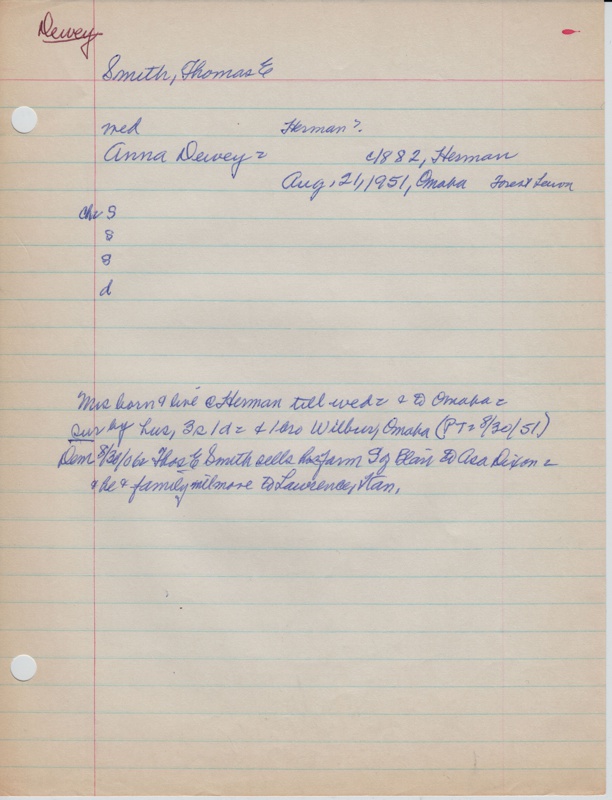 Dewey
Smith, Thomas E
wed Herman?.
Anna Dewey = c1882, Herman
Aug, 21, 1951, Omaha Forest Lawn
chr s
s
s
d
Mrs born & live @ Herman till wed = & to Omaha =
sur by hus, 3s 1d = & 1 bro Wilbur, Omaha (PT = 8/30/51)
Dem 8/30/06 Thos E Smith sells his farm S of Blair to Asa Dixon =
& he & family will move to Lawrence, Kan.